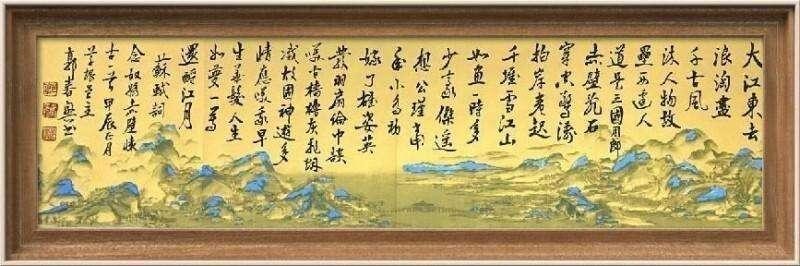 大江東去
浪淘盡
千古風
流人物故
壘西邊人
道是三國周郎
赤壁亂石
穿空驚濤
拍岸卷起
千堆雪江山
如畫一時多
少豪傑遥
想公瑾當
年小喬初
嫁了雄姿英
發羽扇綸巾談
笑間檣櫓灰飛烟
滅故國神遊多
情應笑我早
生華髮人生
如夢一尊
還酹江月
蘇軾詞
念奴嬌赤壁懷
古一首甲辰正月
堂主
郭春